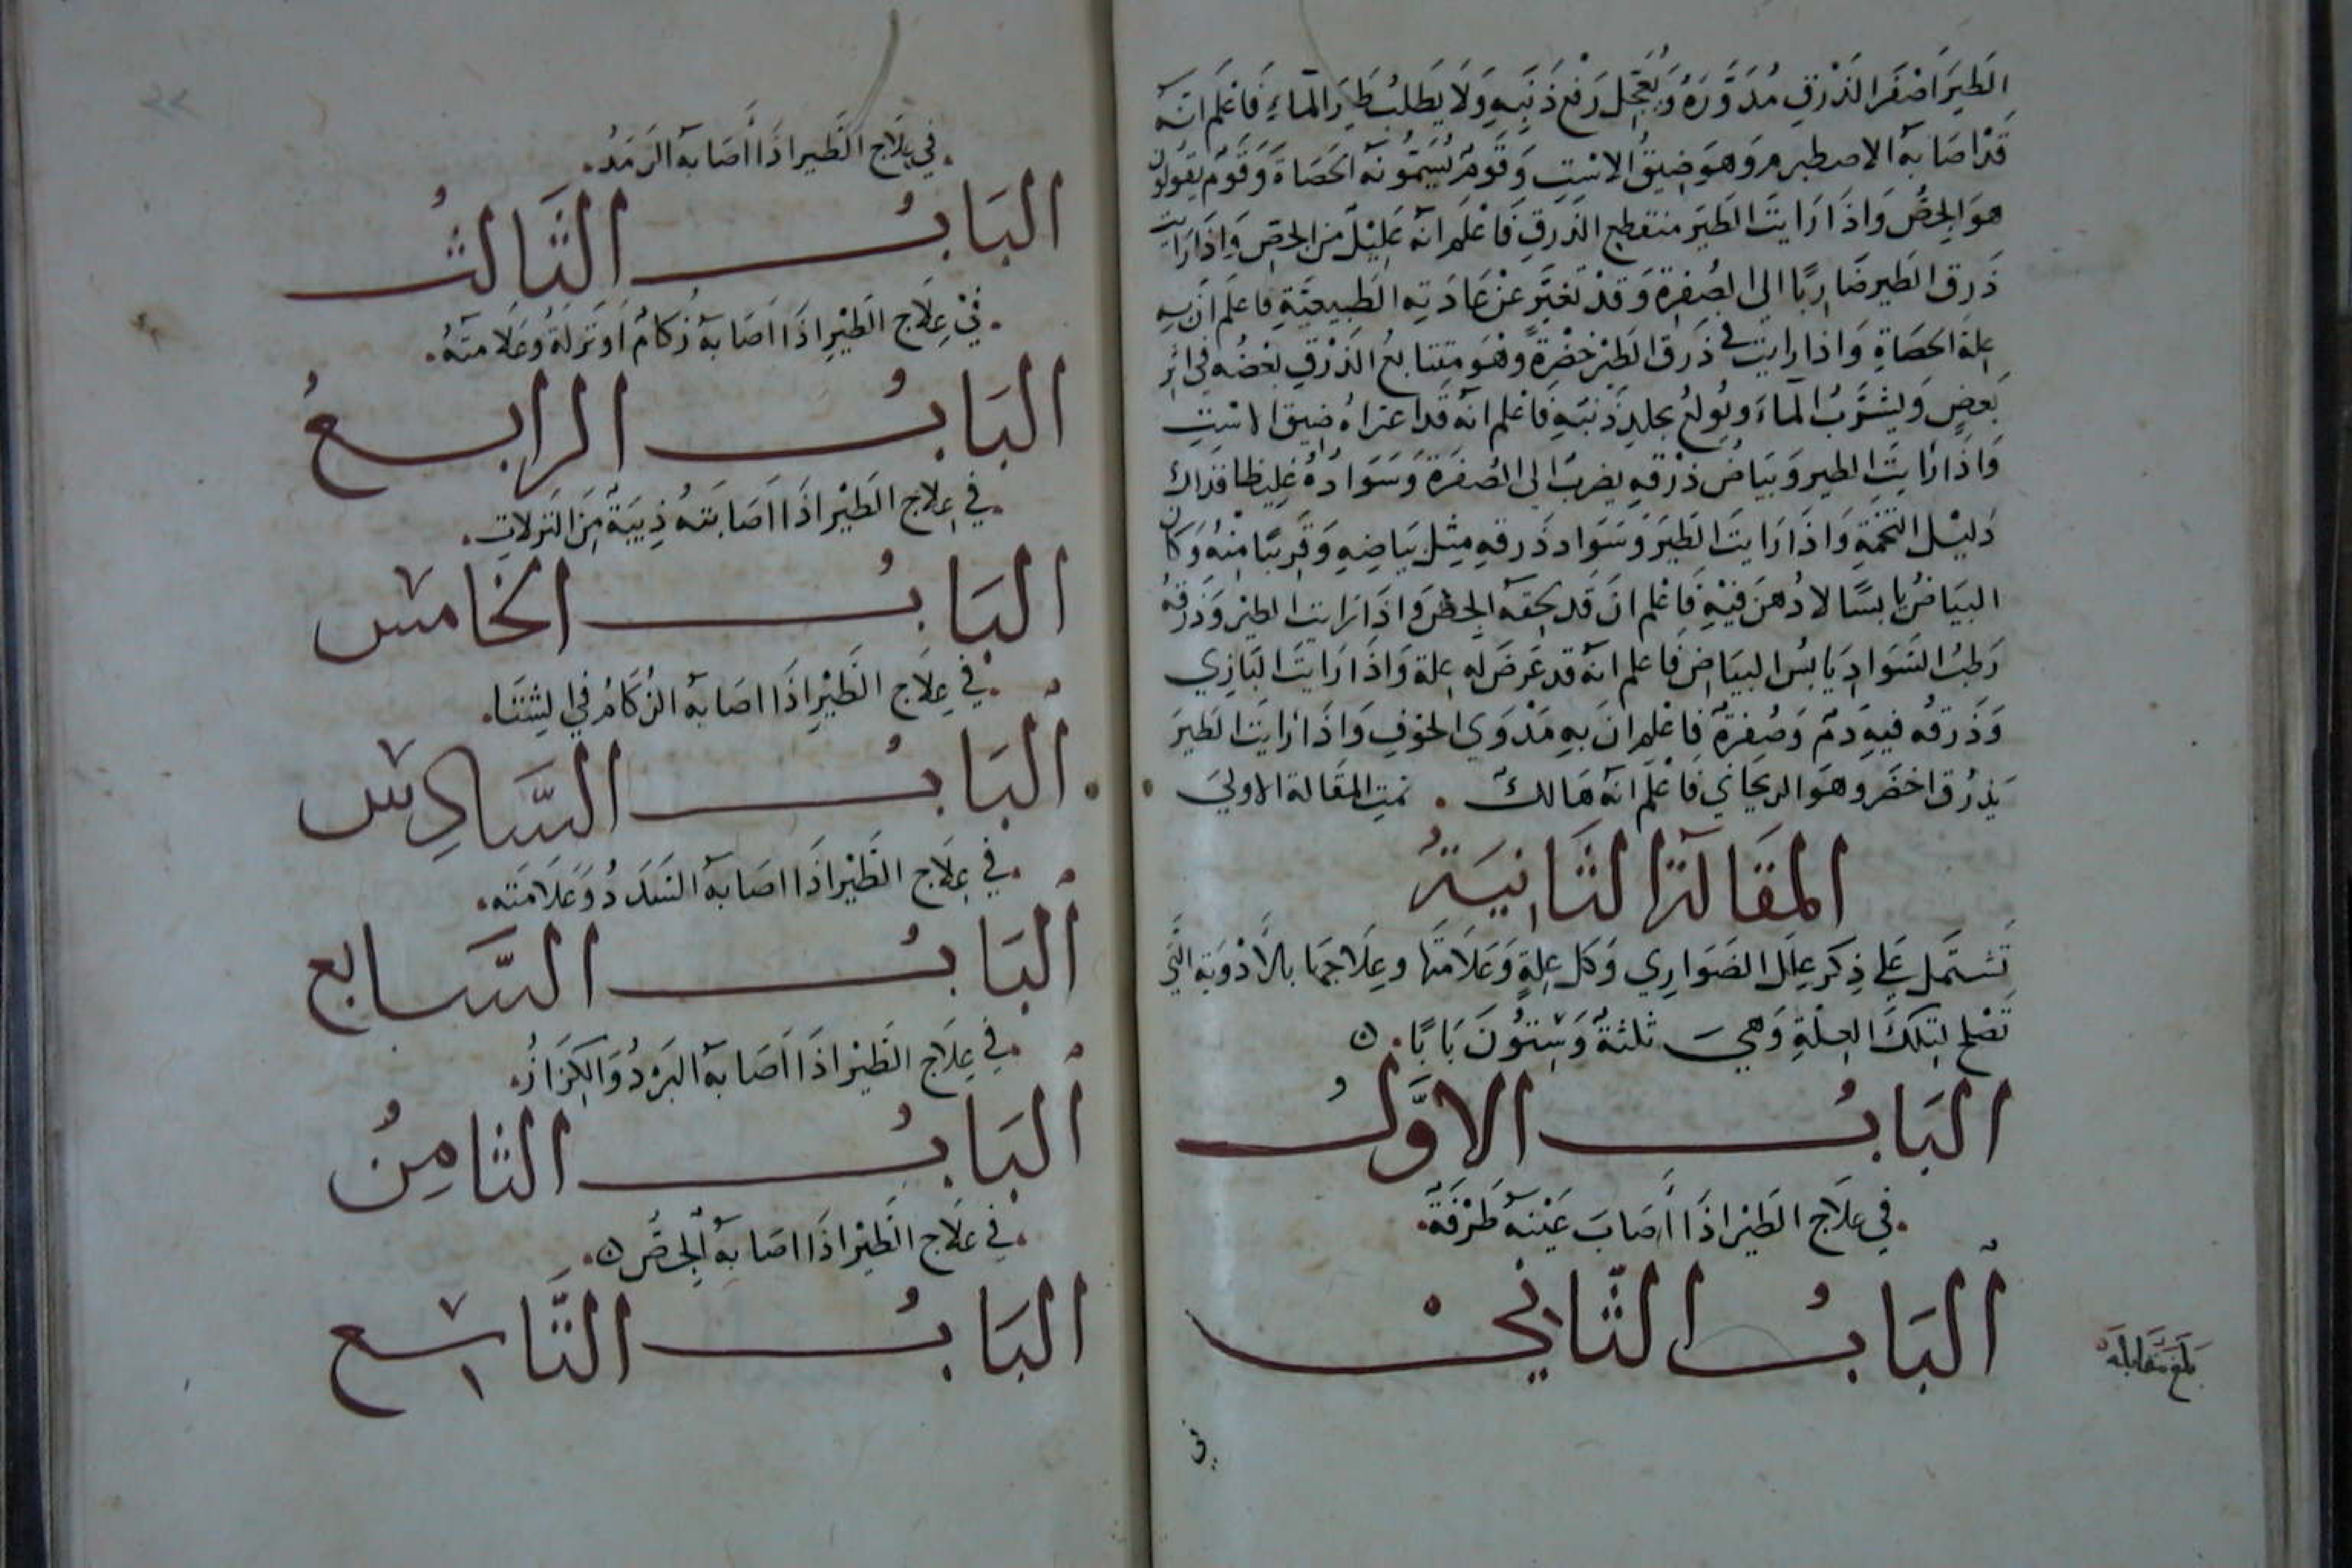 الطَيرَ اصْفَر الذَرْقِ مُدَوَّرَهُ وَيُعَجِّل رَفْع ذَنَبِهِ وَلَا يَطلبُ طَيرَ المَاءِ فَاعْلَم انّهُ
قَدْ اصَابهُ الاصطبرم وَهوَ ضِيقُ الاسْتِ وَقَومٌ يُسَمُّونَهُ الحَصَاةَ وَقَومٌ يَقولون
هوَ الجصُّ وَاذَا رَايتَ الطَيرَ منقطع الذَرقِ فَاعْلَم انهُ عَلِيْلٌ مِنَ الجصِّ وَاِذَا رَايتَ
ذَرقَ الطَيرِ ضَارِبًا الى الصُفرةِ وَقدْ تغيَّر عَنْ عَادَتِهِ الطَبِيعيَّةِ فاعلَم اَنّ بهِ
عِلة الحصَاةِ وَاذا رايتَ في ذَرق الطَيْرِ خضْرةً وهْوَ متتابعُ الذرْقِ بعْضُه في اثرِ
بَعضٍ وَيشرَبُ الماءَ ويُولعُ بجلدِ ذَنبَهِ فَاعْلم انهُ قد اعتراهُ ضيقُ الاسْتِ
وَاذَا رَايتَ الطير وَبيَاض ذرْقهِ يضربُ الى الصُفرَة وَسَوَادُهُ غلِيظا فذاك
دَليْل التّخمَةِ وَاذَا رَايتَ الطَيرَ وَسَوَاد ذَرقهِ مِثل بيَاضِهِ وَقَريبًا مِنْهُ وَكان
البيَاضُ يابسًا لا دُهنَ فيْهِ فَاعْلم انَ قَد لحقَهُ الجصُّ وَاذَا رَايت الطيْر وَذرقهُ
رَطبُ السَوَادِ يَابسُ البيَاضِ فَاعلم انهُ قد عَرَضَ لهِ عِلة وَاذَا رَايتَ البَازي
وَذَرقه فيهِ دَمٌ وَصُفرةٌ فَاعْلم انَ بهِ مَدْوَى الجوْفِ وَاذَا رَايتَ الطَيرَ
يَذرُق اخضَر وهوَ الريحَاني فَاعْلَم انهُ هَالكٌ . تمتِ المقَالة الاولىَ
المَقَالَة الثَانِيَةُ
تَشتمَل عَلى ذِكر عِلَل الضَوَارِي وَكل عِلةٍ وَعَلامَتهَا وعِلاجهَا بالاَدْوَية التَّي
تَصْلح لتِلكَ العِلَّةِ وَهيَ ثلثةٌ وَسِتوُّنَ بَابًا . ن
البَابُ الاوَّلُ
. في عِلَاج الطَيْر اذَا اَصَابَ عَيْنَهُ طَرْفَةٌ .
البَابُ الثّانيْ
بَلَغَ مقَابلَةً
في
. في عِلَاج الطَيْر اذَا اَصَابهُ الرَمَدُ .
البَابُ الثَالثُ
. فيْ عِلَاج الطَيْر اذَا اَصَابهُ زُكامٌ اَوْ نَزلةٌ وَعَلَامتهُ .
البَابُ الرَابعُ
. في عِلاج الطَيْر اذَا اَصَابَتهُ ذِيبَةٌ مِنَ النَزلاتِ .
البَابُ الخَامس
. في عِلَاج الطَيْرِ اذَا اصَابهُ الزكَامُ في الشِتَا .
البَابُ السَّادِس
. في عِلَاج الطَيْر اذَا اصَابهُ السَدَدُ وَعَلَامَته .
البَابُ السَّابع
. في عِلَاج الطَيْر اذَا اَصَابهُ البَردُ وَالكزَازُ .
البَابُ الثامِنُ
. في عِلَاج الطَيْر اذَا اصَابهُ الجصُّ ن .
البَابُ التَّاسع